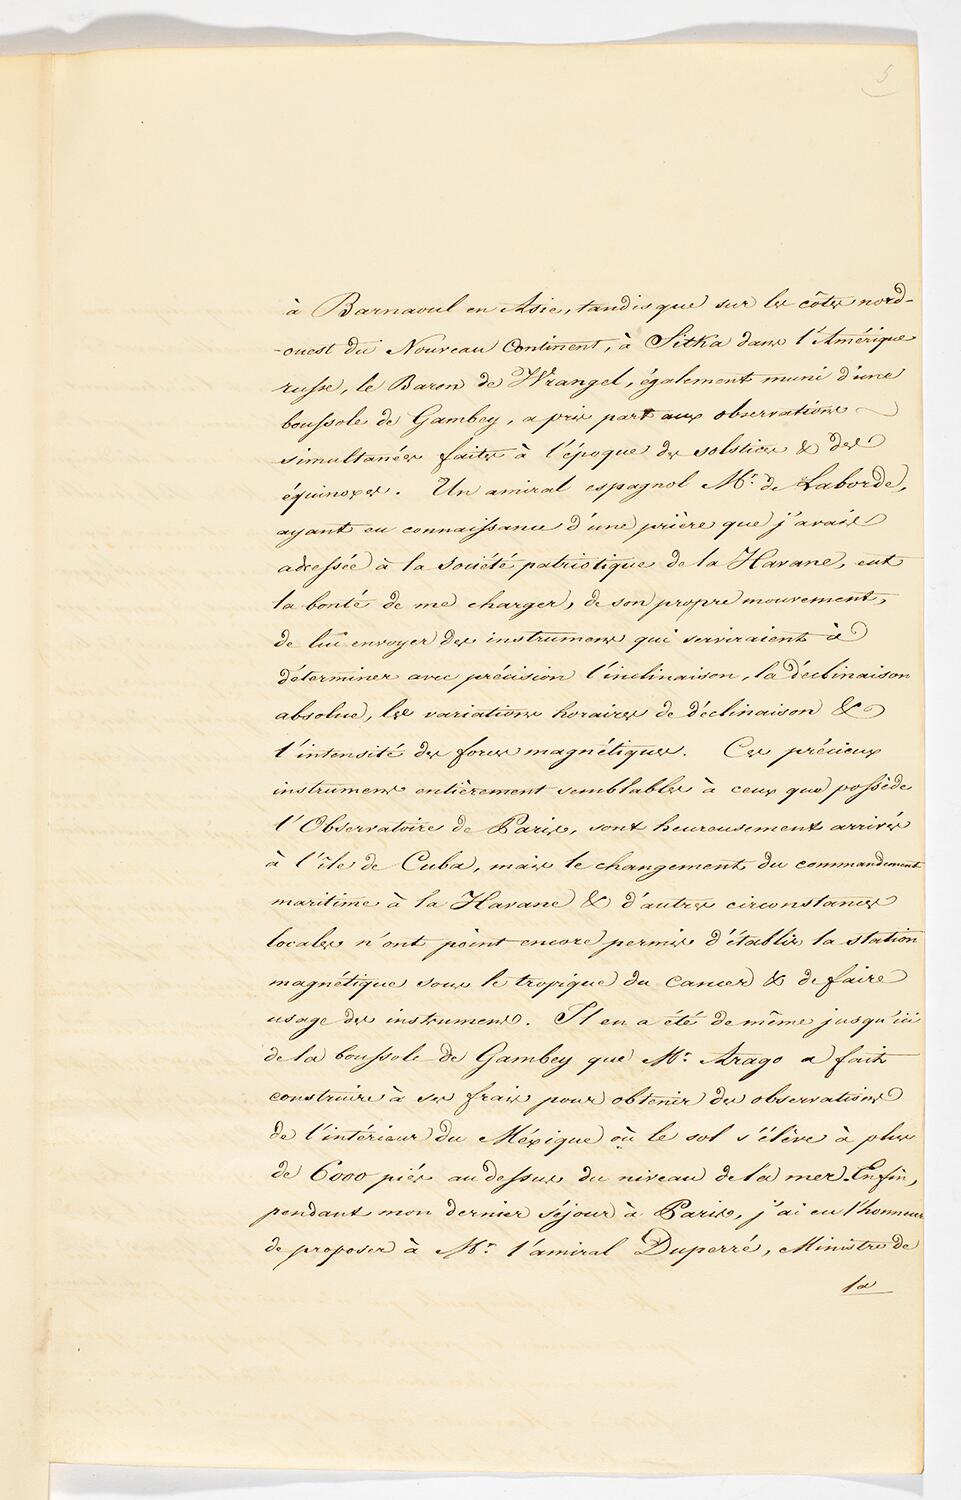 5
à Barnaoul en Asie, tandis que sur les côtes nord-
-ouest du Nouveau Continent, à Sitka dans l'Amérique
russe, le Baron de Wrangel, également muni d'une
boussole de Gambey, a pris part aux observations
simultanées faites à l'époque des solstices & des
équinoxes. Un amiral espagnol Mr. de Laborde,
ayant eu connaissance d'une prière que j'avais
adressée à la société patriotique de la Havane, eut
la bonté de me charger, de son propre mouvement,
de lui envoyer des instrumens qui serviraient à
déterminer avec précision l'inclinaison, la déclinaison
absolue, les variations horaires de déclinaison &
l'intensité des forces magnétiques. Ces précieux
instrumens entièrement semblables à ceux que possède
l'Observatoire de Paris, sont heureusement arrivés
à l'île de Cuba, mais le changement du commandement
maritime à la Havane & d'autres circonstances
locales n'ont point encore permis d'établir la station
magnétique sous le tropique du cancer & de faire
usage des instrumens. Il en a été de même jusqu'ici
de la boussole de Gambey que Mr. Arago a fait
construire à ses frais pour obtenir des observations
de l'intérieur du Méxique où le sol s'élève à plus
de 6000 piés au dessus du niveau de la mer. Enfin,
pendant mon dernier séjour à Paris, j'ai eu l'honneur
de proposer à Mr. l'amiral Duperré, Ministre de
la